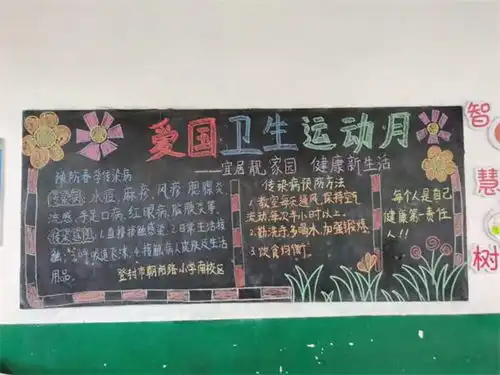 爱国卫生运动月
——宜居靓家园 健康新生活
预防春季传染病
传染病:水痘、麻疹、风疹、腮腺炎
流感、手足口病、红眼病、脑膜炎等。
传染途径:1.直接接触感染.2.日常生活接
触,3.呼吸道飞沫.4.接触病人皮肤及生活
用品。
登封市朝阳路小学南校区
传染病预防方法
1.教室每天通风,保持空气
流动,每次半小时以上.
2.勤洗手、多喝水、加强锻炼.
3.饮食均衡.
每个人是自己
健康第一责任
人!!
智
慧
树